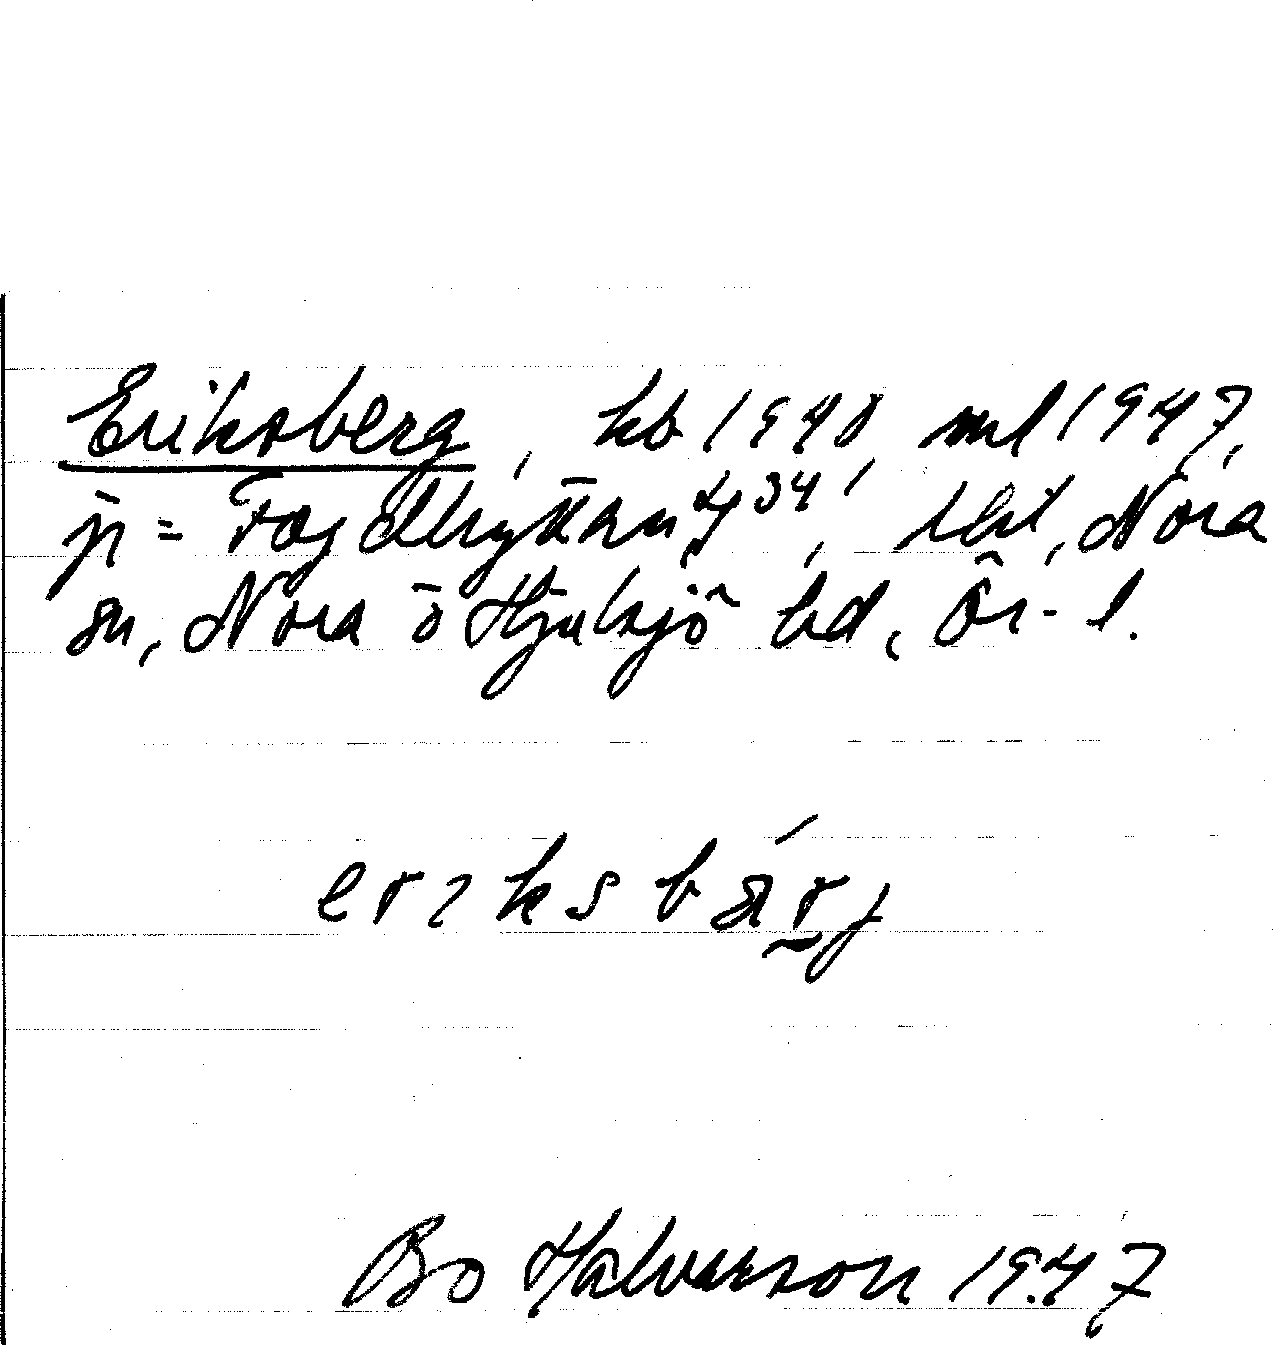 Eriksberg, kb 1940, ml 1947,
jr = Fogdhyttan 4³⁴, lht, Nora
sn, Nora o Hjulsjö bd, Ör. l.
erιksbä́rj
Bo Halvarson 1947